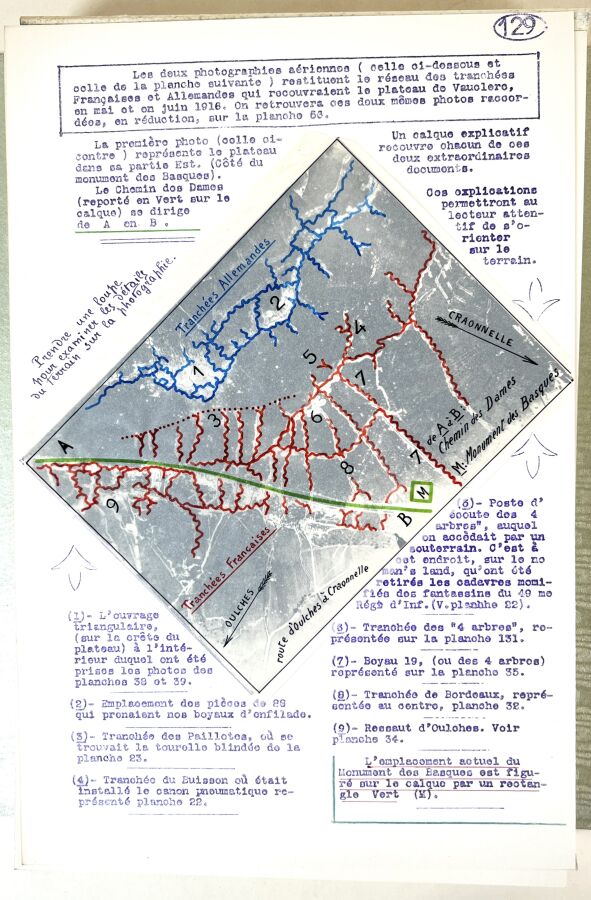 129
Les deux photographies aériennes ( celle ci-dessous et
celle de la planche suivante ) restituent le réseau des tranchées
Françaises et Allemandes qui recouvraient le plateau de Vauclerc,
en mai et en juin 1916. On retrouvera ces deux mêmes photos raccor-
dées, en réduction, sur la planche 66.
La première photo (celle ci-
contre ) représente le plateau
dans sa partie Est. (Côté du
monument des Basques).
Le Chemin des Dames
(reporté en Vert sur le
calque) se dirige
de A en B .
Un calque explicatif
recouvre chacun de ces
deux extraordinaires
documents.
Ces explications
permettront au
lecteur atten-
tif de s'o-
rienter
sur le
terrain.
Prendre une loupe
pour examiner les détails
du terrain sur la photographie.
Tranchées Allemandes
2
1
CRAONNELLE
4
5
7
3
6
A
8
7
de A à B:
Chemin des Dames
M: Monument des Basques.
9
M
B
Tranchées Françaises
OULCHES
route d'Oulches à Craonnelle
(1)- L'ouvrage
triangulaire,
(sur la crête du
plateau) à l'inté-
rieur duquel ont été
prises les photos des
planches 38 et 39.
(2)- Emplacement des pièces de 88
qui prenaient nos boyaux d'enfilade.
(3)- Tranchée des Paillotes, où se
trouvait la tourelle blindée de la
planche 23.
(4)- Tranchée du Buisson où était
installé le canon pneumatique re-
présenté planche 22.
(5)- Poste d'
écoute des "4
arbres", auquel
on accédait par un
souterrain. C'est à
cet endroit, sur le no
man's land, qu'ont été
retirés les cadavres momi-
fiés des fantassins du 49 me
Régt d'Inf.(V.planche 22).
(6)- Tranchée des "4 arbres", re-
présentée sur la planche 131.
(7)- Boyau 19, (ou des 4 arbres)
représenté sur la planche 35.
(8)- Tranchée de Bordeaux, repré-
sentée au centre, planche 32.
(9)- Ressaut d'Oulches. Voir
planche 34.
L'emplacement actuel du
Monument des Basques est figu-
ré sur le calque par un rectan-
gle Vert (M).